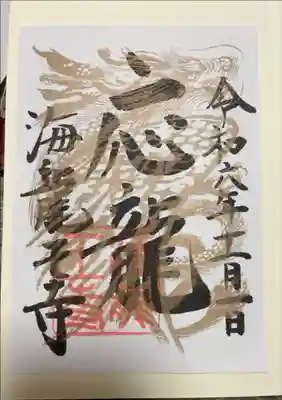 令和六年十二月一日
応龍
海龍王寺